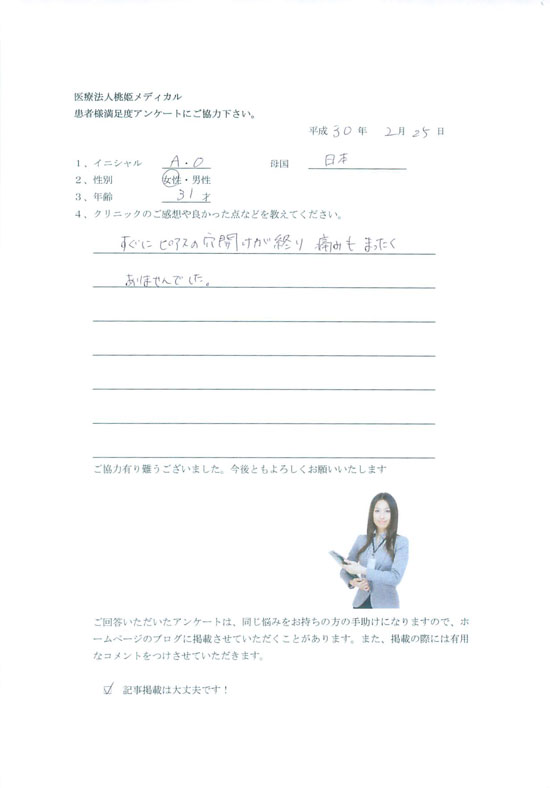 医療法人桃姫メディカル
患者様満足度アンケートにご協力下さい。
平成 30 年 2月 25 日
1、イニシャル A・O 母国 日本
2、性別 女性・男性
3、年齢 31才
4、クリニックのご感想や良かった点などを教えてください。
すぐに ピアスの穴開けが終り 痛みも まったく
ありませんでした。
ご協力有り難うございました。今後ともよろしくお願いいたします
ご回答いただいたアンケートは、同じ悩みをお持ちの方の手助けになりますので、ホ
ームページのブログに掲載させていただくことがあります。また、掲載の際には有用
なコメントをつけさせていただきます。
☑ 記事掲載は大丈夫です！